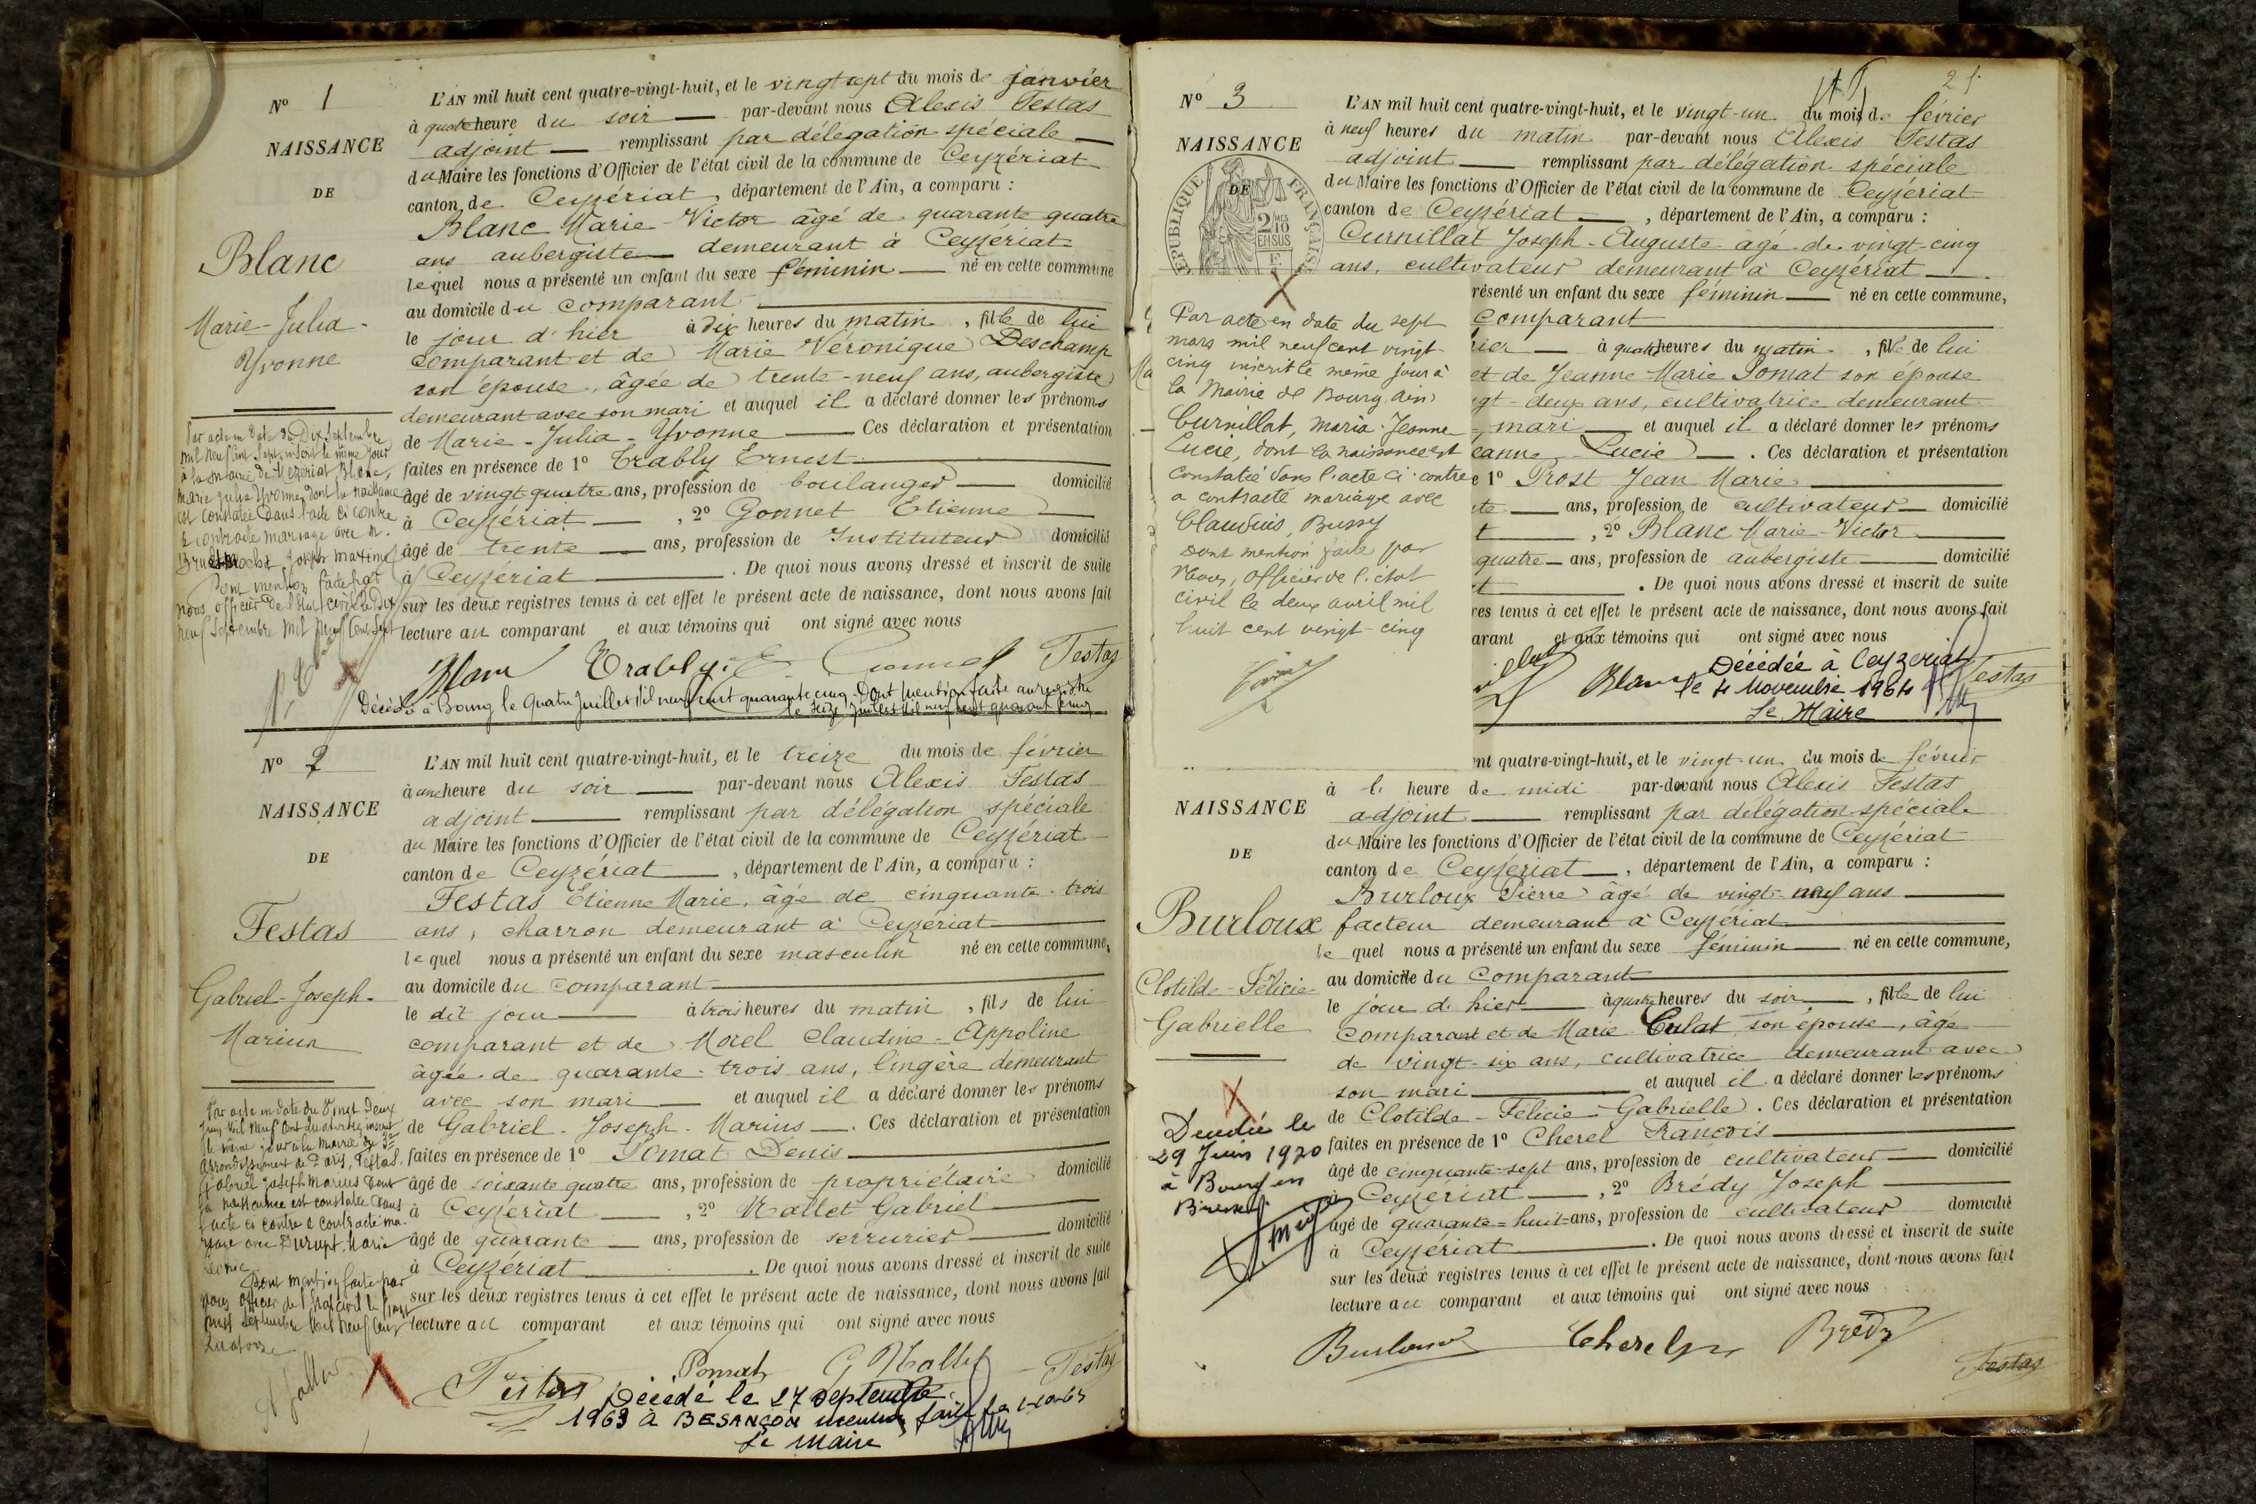 N° 1
NAISSANCE
DE
Blanc
Marie-Julia-
Yvonne
L'AN mil huit cent quatre-vingt-huit, et le vingt sept du mois de janvier
à quatre heure du soir par-devant nous Alexis Festas
adjoint remplissant par délégation spéciale
du Maire les fonctions d'Officier de l'état civil de la commune de Ceyzériat
canton de Ceyzériat, département de l'Ain, a comparu :
Blanc Marie-Victor âgé de quarante quatre
ans aubergiste demeurant à Ceyzériat
lequel nous a présenté un enfant du sexe féminin né en cette commune
au domicile du comparant
le jour d'hier à dix heures du matin, fille de lui
comparant et de Marie Véronique Deschamp
son épouse, âgée de trente-neuf ans, aubergiste
demeurant avec son mari et auquel il a déclaré donner les prénoms
de Marie-Julia-Yvonne Ces déclaration et présentation
faites en présence de 1° Trably Ernest
âgé de vingt-quatre ans, profession de boulanger domicilié
à Ceyzériat, 2° Gonnet Etienne
âgé de trente ans, profession de Instituteur domicilié
à Ceyzériat. De quoi nous avons dressé et inscrit de suite
sur les deux registres tenus à cet effet le présent acte de naissance, dont nous avons fait
lecture au comparant et aux témoins qui ont signé avec nous
Par acte en date du Dix Septembre
mil neuf cent sept, inscrit le même jour
à la mairie de Blanc,
Marie Julia Yvonne, dont la naissance
est constatée dans l'acte ci contre
a contracté mariage avec M.
Joseph Maxime
Dont mention faite par
nous officier de l'état civil le dix
neuf Septembre mil neuf cent sept
Blanc Trably E. Gonnet Festas
Décédée à Bourg le Quatre Juillet mil neuf cent quarante cinq. Dont mention faite au registre
le Juillet mil neuf cent quarante cinq
N° 2
NAISSANCE
DE
Festas
Gabriel-Joseph-
Marius
L'AN mil huit cent quatre-vingt-huit, et le treize du mois de février
à une heure du soir par-devant nous Alexis Festas
adjoint remplissant par délégation spéciale
du Maire les fonctions d'Officier de l'état civil de la commune de Ceyzériat
canton de Ceyzériat, département de l'Ain, a comparu :
Festas Etienne Marie, âgé de cinquante-trois
ans, charron demeurant à Ceyzériat
lequel nous a présenté un enfant du sexe masculin né en cette commune,
au domicile du comparant
le dit jour à trois heures du matin, fils de lui
comparant et de Morel Claudine-Appoline
âgée de quarante-trois ans, lingère demeurant
avec son mari et auquel il a déclaré donner les prénoms
de Gabriel-Joseph-Marius. Ces déclaration et présentation
faites en présence de 1° Pomat Denis
âgé de soixante quatre ans, profession de propriétaire domicilié
à Ceyzériat, 2° Mallet Gabriel
âgé de quarante ans, profession de serrurier domicilié
à Ceyzériat. De quoi nous avons dressé et inscrit de suite
sur les deux registres tenus à cet effet le présent acte de naissance, dont nous avons fait
lecture au comparant et aux témoins qui ont signé avec nous
Par acte en date du Vingt Deux
Juin mil neuf cent quatorze inscrit
le même jour à la mairie du
arrondissement de Paris, Festas
Gabriel Joseph Marius dont
la naissance est constatée dans
l'acte ci contre a contracté ma-
riage avec Durupt Marie
Dont mention faite par
nous officier de l'état civil le
Septembre mil neuf cent
quatorze
Festas Pomat G Mallet Festas
Décédé le 27 Septembre
1963 à BESANÇON mention faite le 1-10-63
Le Maire
N° 3
NAISSANCE
DE
RÉPUBLIQUE FRANÇAISE
2/10 EN SUS
L'AN mil huit cent quatre-vingt-huit, et le vingt-un du mois de février
à neuf heures du matin par-devant nous Alexis Festas
adjoint remplissant par délégation spéciale
du Maire les fonctions d'Officier de l'état civil de la commune de Ceyzériat
canton de Ceyzériat, département de l'Ain, a comparu :
Curnillat Joseph-Auguste âgé de vingt-cinq
ans, cultivateur demeurant à Ceyzériat
résenté un enfant du sexe féminin né en cette commune,
comparant
rier à quatre heures du matin, fille de lui
et de Jeanne-Marie Pomat son épouse
gt-deux ans, cultivatrice demeurant
mari et auquel il a déclaré donner les prénoms
eanne-Lucie. Ces déclaration et présentation
e 1° Prost Jean Marie
te ans, profession de cultivateur domicilié
t, 2° Blanc Marie-Victor
quatre ans, profession de aubergiste domicilié
t. De quoi nous avons dressé et inscrit de suite
res tenus à cet effet le présent acte de naissance, dont nous avons fait
arant et aux témoins qui ont signé avec nous
Par acte en date du sept
mars mil neuf cent vingt-
cinq inscrit le même jour à
la Mairie de Bourg Ain
Curnillat, Maria-Jeanne
Lucie, dont la naissance est
constatée dans l'acte ci-contre
a contracté mariage avec
Claudius, Bussy
Dont mention faite par
Nous, officier de l'état
civil le deux avril mil
huit cent vingt-cinq
Blanc Festas
Décédée à Ceyzeriat
le 4 Novembre 1964
Le Maire
NAISSANCE
DE
Burloux
Clotilde-Félicie-
Gabrielle
nt quatre-vingt-huit, et le vingt-un du mois de février
à l' heure de midi par-devant nous Alexis Festas
adjoint remplissant par délégation spéciale
du Maire les fonctions d'Officier de l'état civil de la commune de Ceyzériat
canton de Ceyzériat, département de l'Ain, a comparu :
Burloux Pierre âgé de vingt-neuf ans
facteur demeurant à Ceyzériat
le quel nous a présenté un enfant du sexe féminin né en cette commune,
au domicile du comparant
le jour d'hier à quatre heures du soir, fille de lui
comparant et de Marie Culat son épouse, âgé
de vingt-six ans, cultivatrice demeurant avec
son mari et auquel il a déclaré donner les prénoms
de Clotilde-Félicie-Gabrielle. Ces déclaration et présentation
faites en présence de 1° Cherel François
âgé de cinquante-sept ans, profession de cultivateur domicilié
à Ceyzériat, 2° Brédy Joseph
âgé de quarante-huit ans, profession de cultivateur domicilié
à Ceyzériat. De quoi nous avons dressé et inscrit de suite
sur les deux registres tenus à cet effet le présent acte de naissance, dont nous avons fait
lecture au comparant et aux témoins qui ont signé avec nous
Décédée le
29 Juin 1970
a Bourg en
Bresse
Burloux Cherel Brédy
Festas